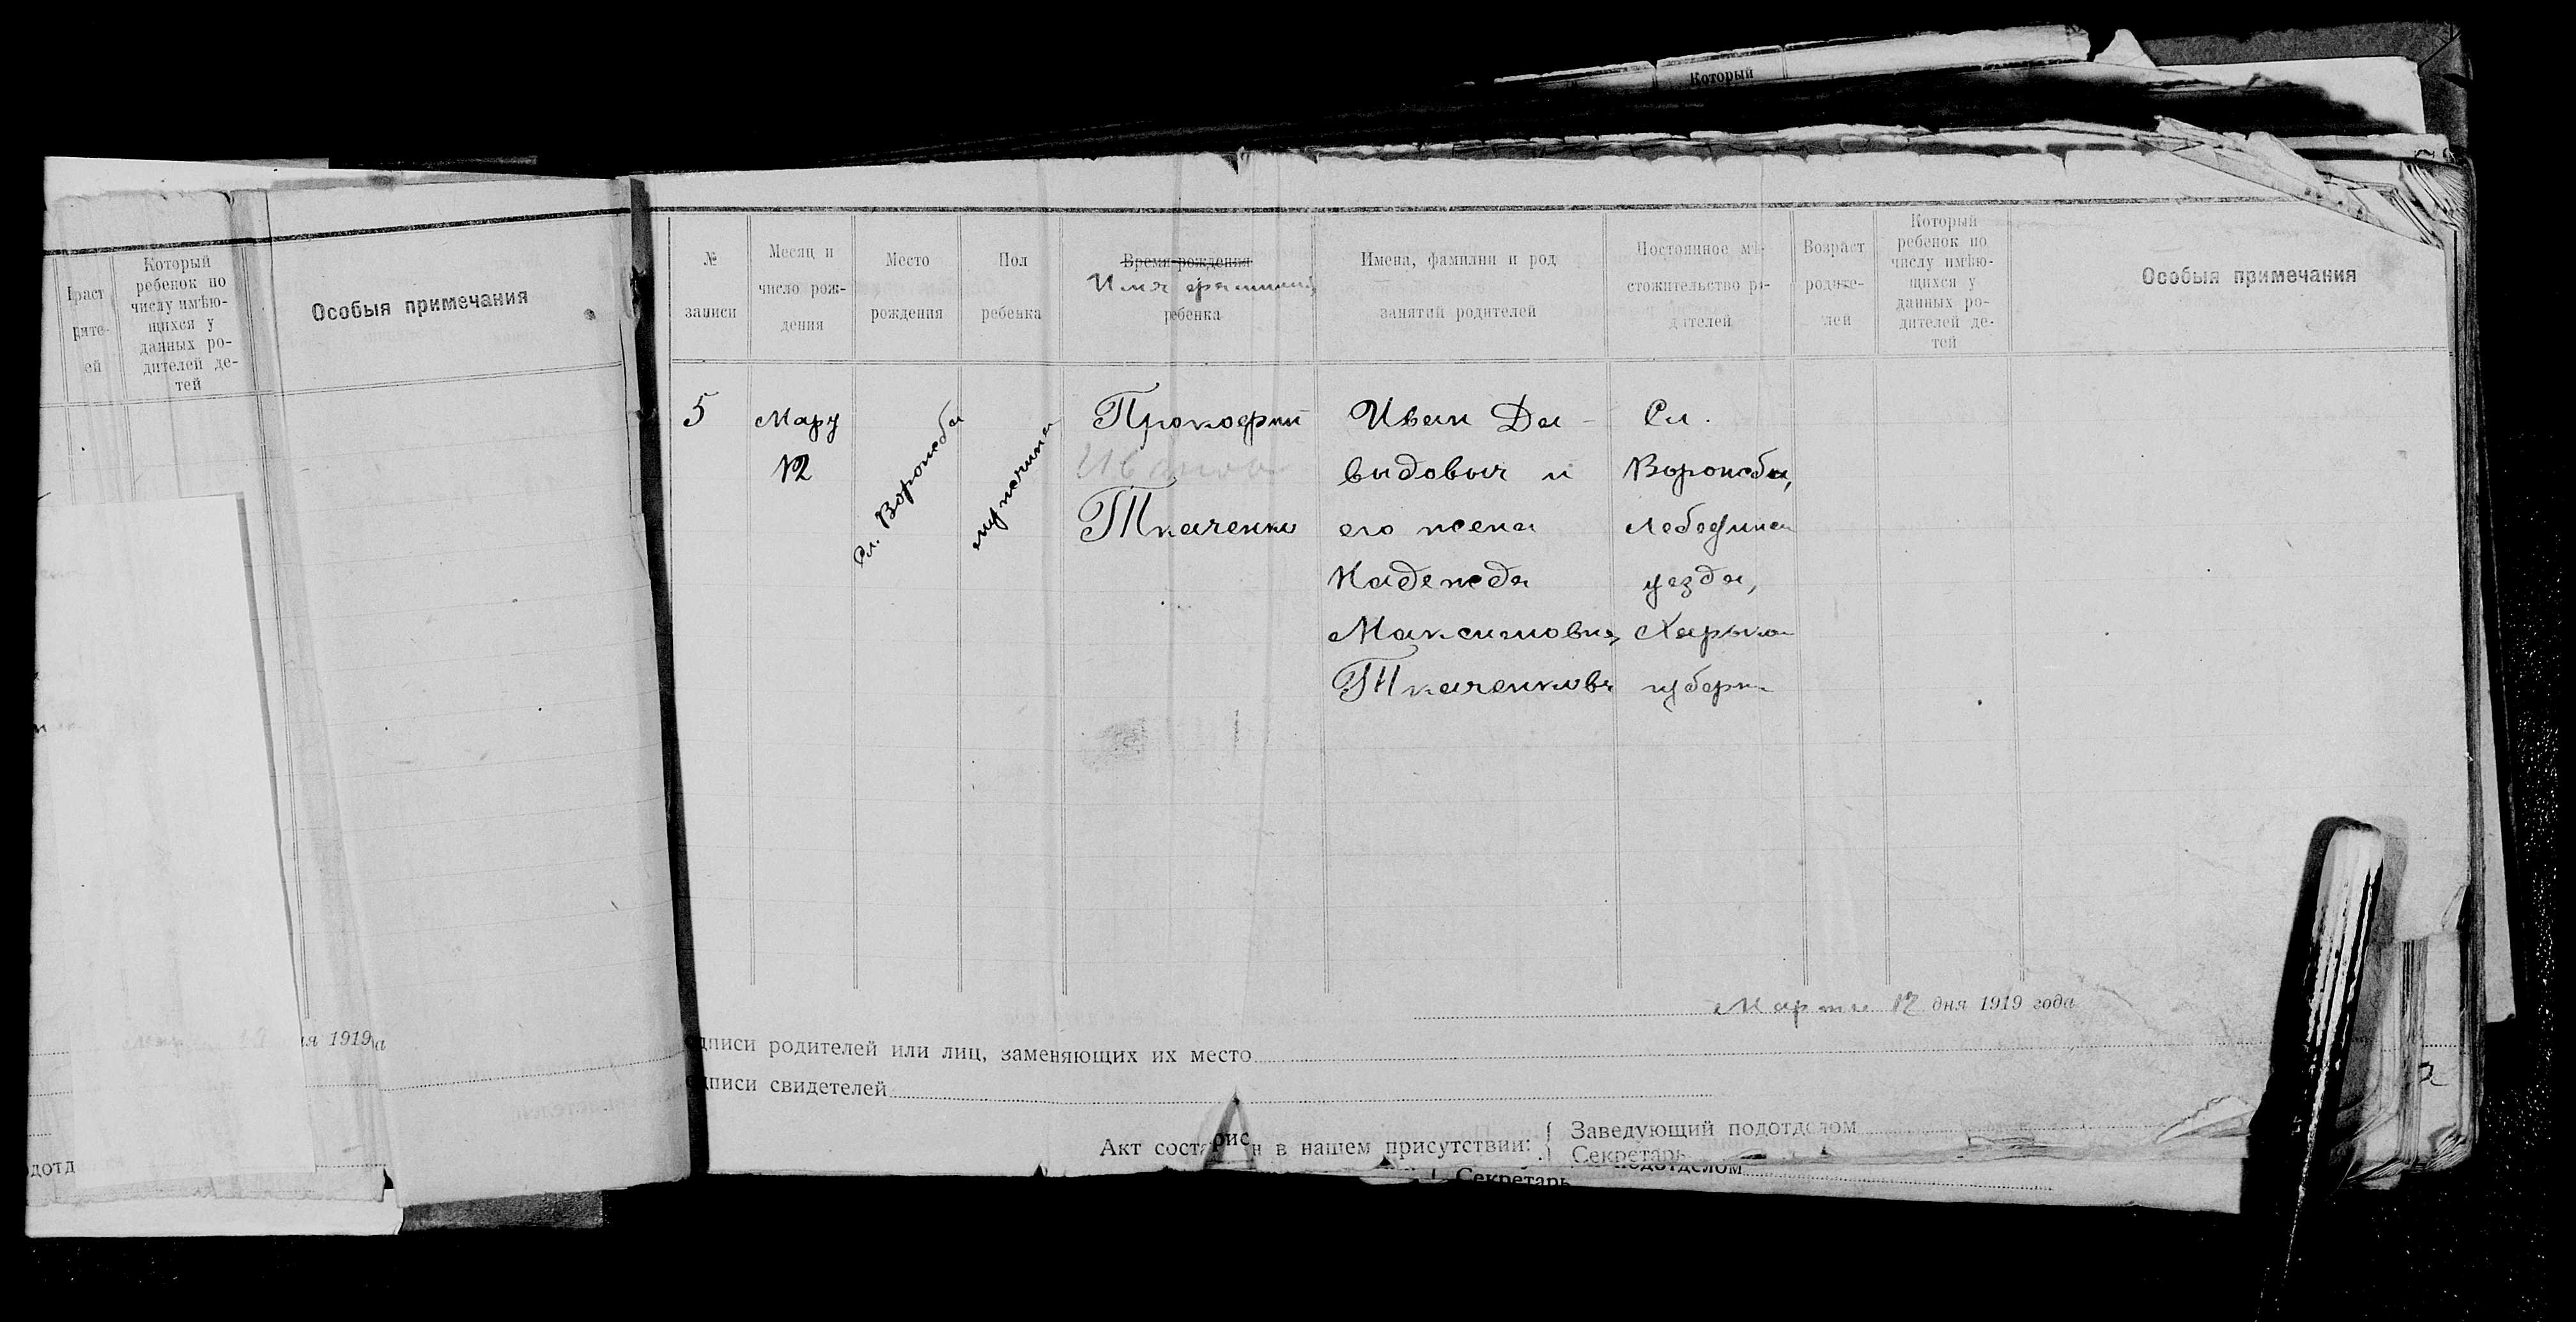 Который
раст
рите-
ей
Который
ребенок по
числу имѣю-
щихся у
данных ро-
дителей де-
тей
Особыя примечания
№
записи
Месяц и
число рож-
дения
Место
рождения
Пол
ребенка
Время рождения
Имя фамилия
ребенка
Имена, фамилии и род
занятий родителей
Постоянное мѣ-
стожительство ро-
дителей
Возраст
родите-
лей
Который
ребенок по
числу имѣю-
щихся у
данных ро-
дителей де-
тей
Особыя примечания
5
Март
12
Сл. Ворожба
мужчина
Прокофий
Иванов
Ткаченко
Иван Да-
видович и
его жена
Надежда
Максимовна,
Ткаченковы
Сл.
Ворожба,
Лебедин
уезда,
Харьков
губерн
Марта 12 дня 1919 года
я 1919 а
дписи родителей или лиц, заменяющих их место
дписи свидетелей
Акт соста рис н в нашем присутствии:
Заведующий подотделом
Секретарь
подотделом
Секретарь
дотд